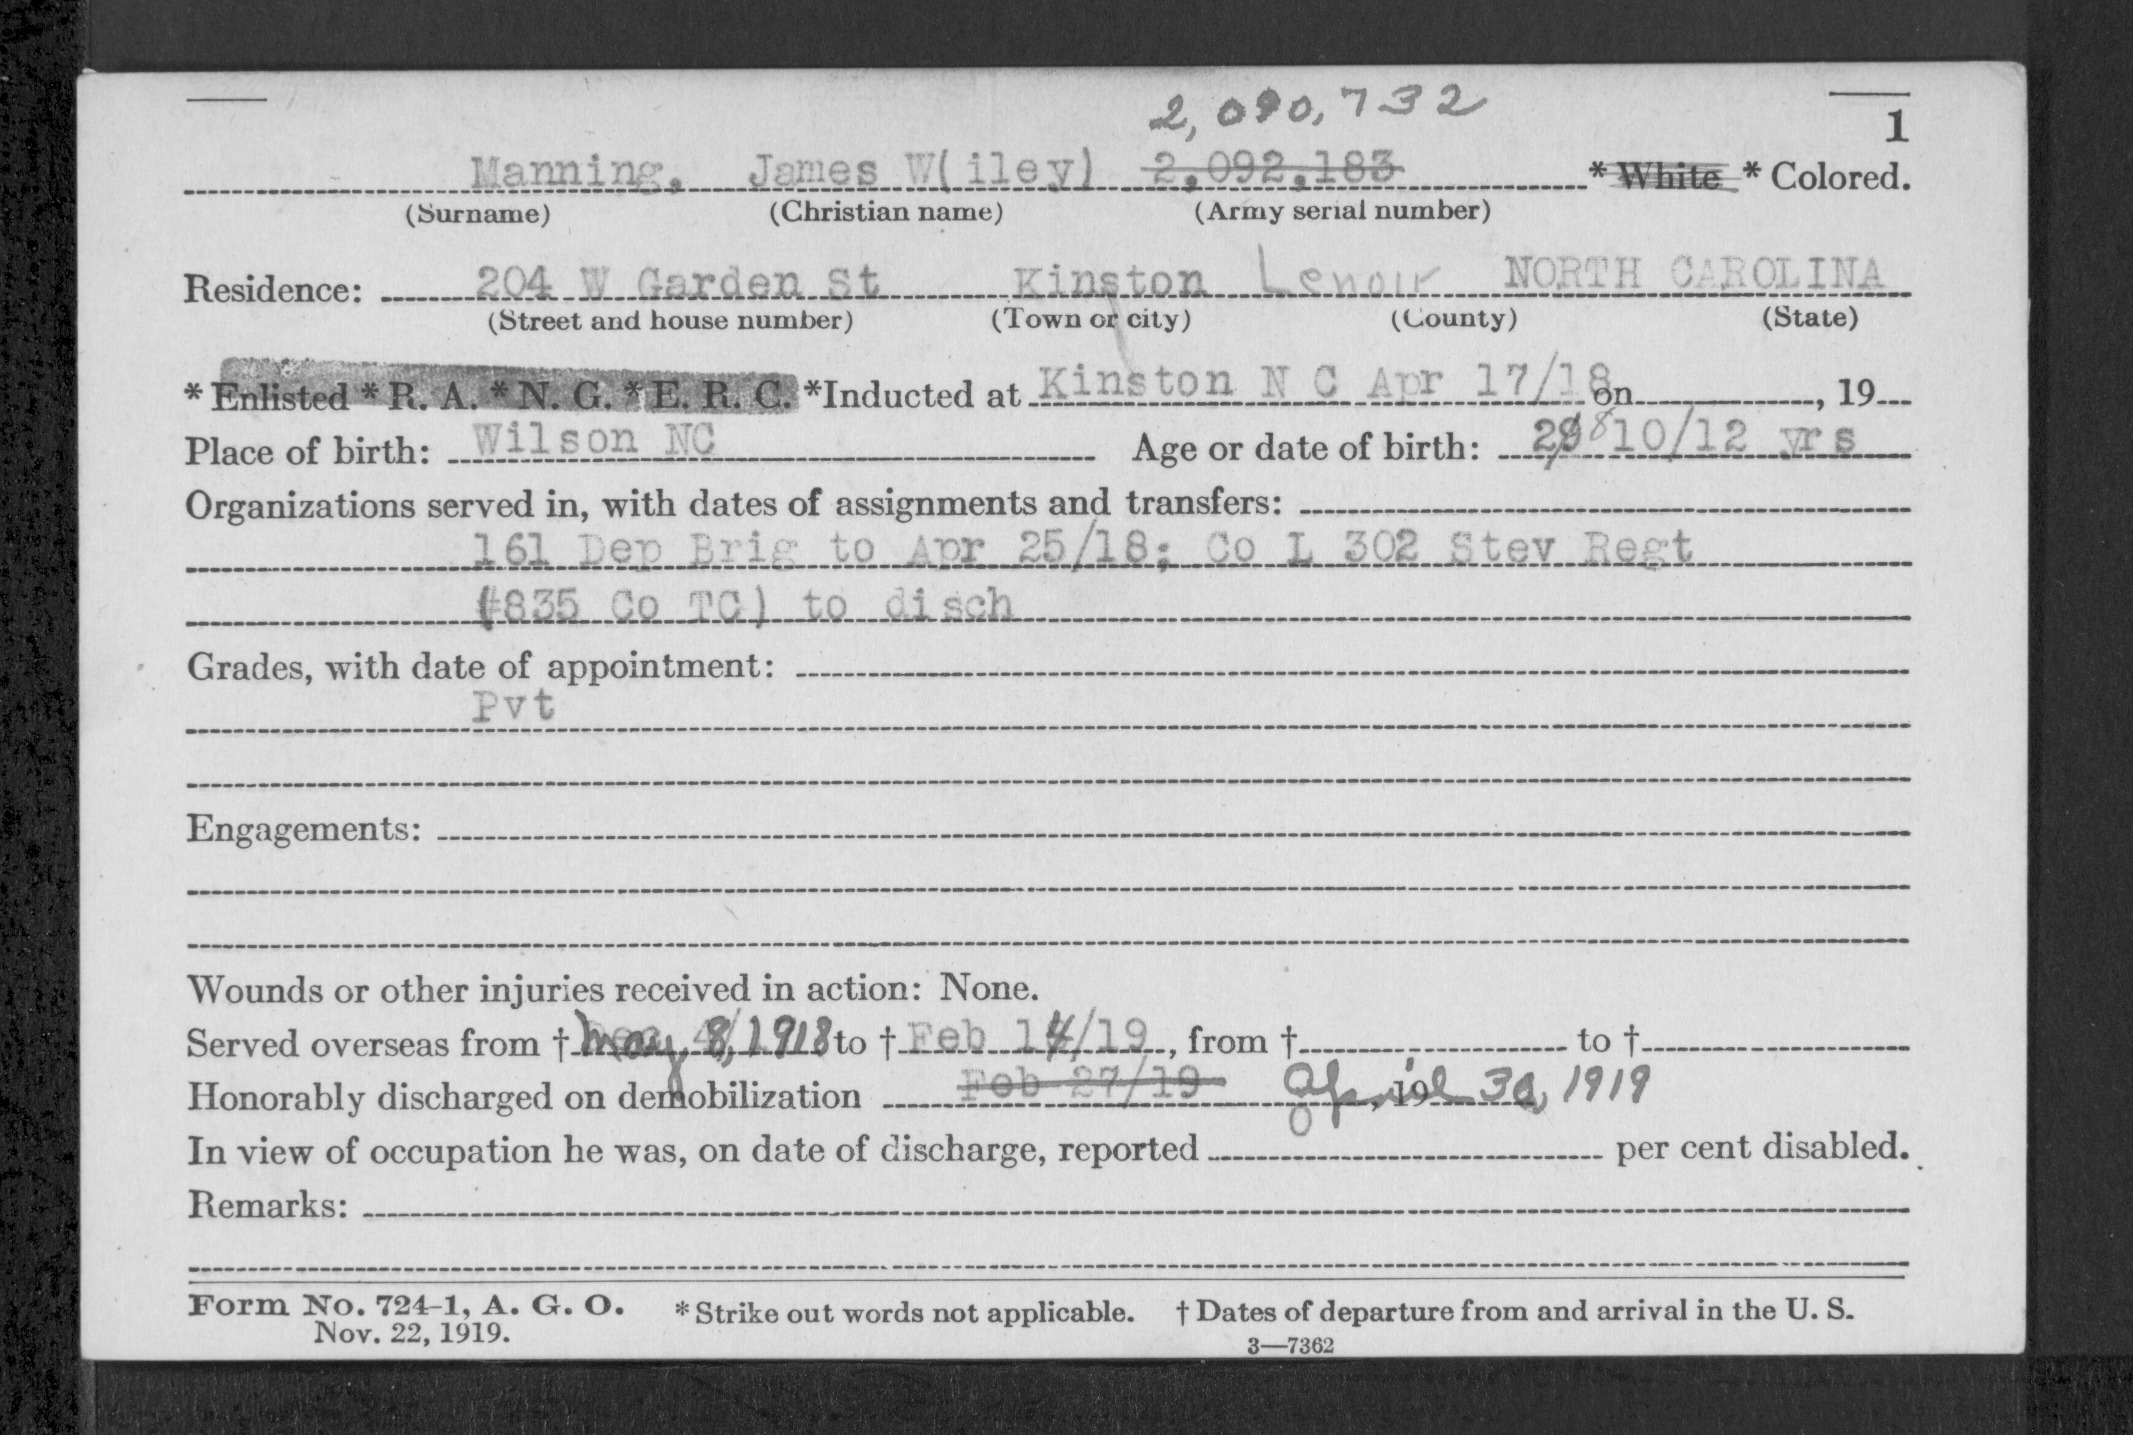 2,090,732
1
Manning, James W(iley) 2,092,183 * White * Colored.
(Surname) (Christian name) (Army serial number)
Residence: 204 W Garden St Kinston Lenoir NORTH CAROLINA
(Street and house number) (Town or city) (County) (State)
* Enlisted * R. A. * N. G. * E. R. C. *Inducted at Kinston N C Apr 17/18 on , 19
Place of birth: Wilson NC Age or date of birth: 29 8 10/12 yrs
Organizations served in, with dates of assignments and transfers:
161 Dep Brig to Apr 25/18; Co L 302 Stev Regt
(#835 Co TC) to disch
Grades, with date of appointment:
Pvt
Engagements:
Wounds or other injuries received in action: None.
Served overseas from † May 8, 1918 to † Feb 14/19 , from † to †
Honorably discharged on demobilization Feb 27/19 April 30, 1919 , 19
In view of occupation he was, on date of discharge, reported per cent disabled.
Remarks:
Form No. 724-1, A. G. O. * Strike out words not applicable. † Dates of departure from and arrival in the U. S.
Nov. 22, 1919.
3—7362